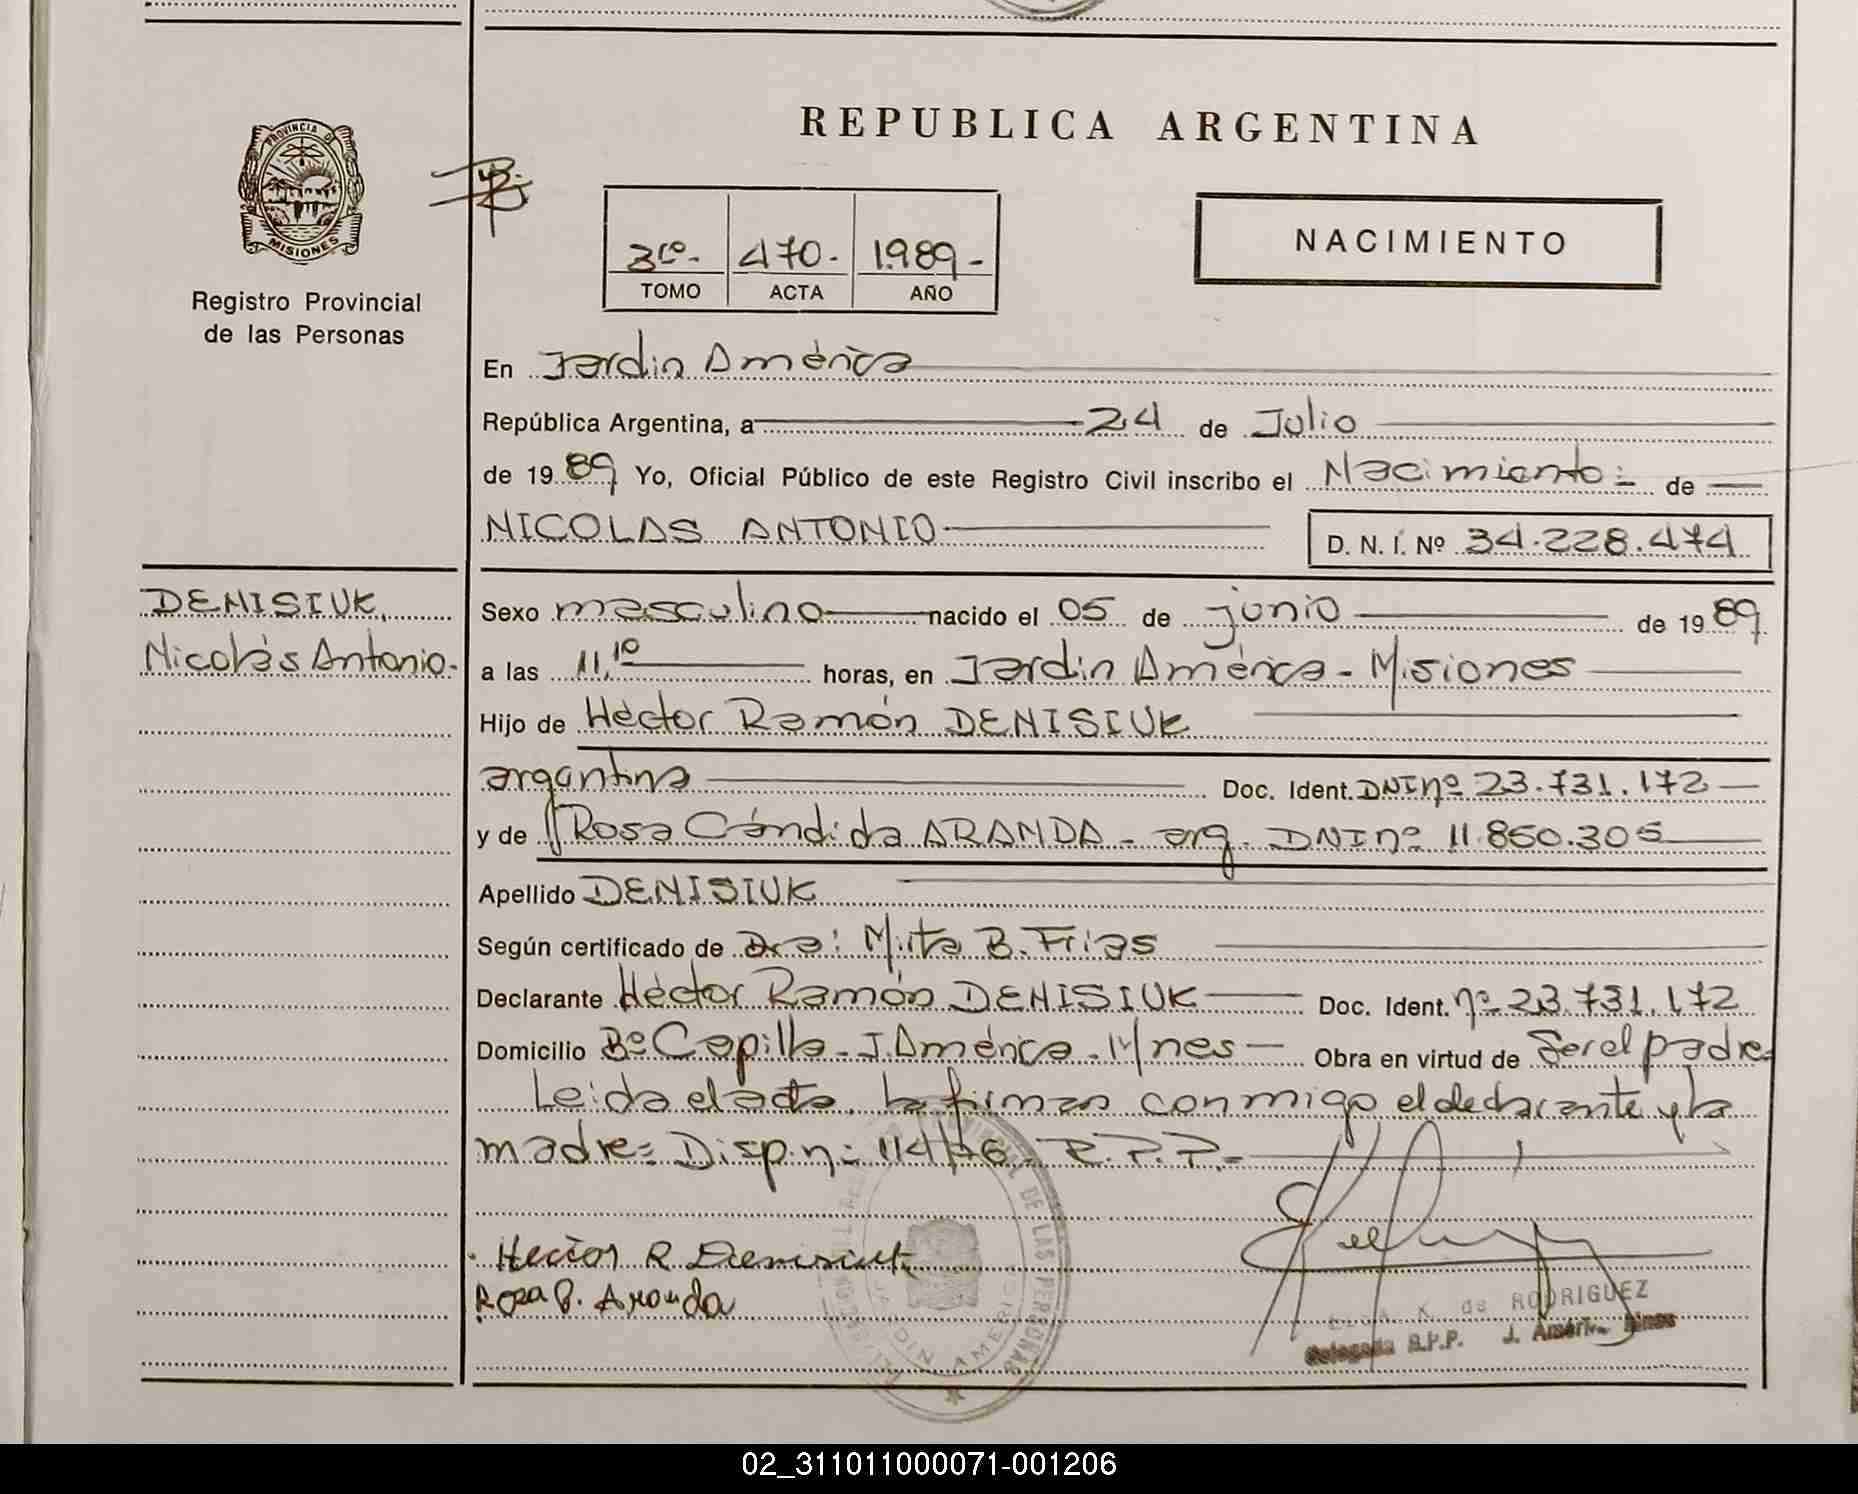 PROVINCIA DE
MISIONES
Registro Provincial
de las Personas
REPUBLICA ARGENTINA
3ro- 470- 1.989-
TOMO ACTA AÑO
NACIMIENTO
En Jardín América
República Argentina, a 24 de Julio
de 19 89 Yo, Oficial Público de este Registro Civil inscribo el Nacimiento: de
NICOLAS ANTONIO D. N. I. Nº 34.228.474
DENISIUK,
Nicolás Antonio.
Sexo masculino nacido el 05 de junio de 19 89
a las 11,10 horas, en Jardín América - Misiones
Hijo de Héctor Ramón DENISIUK
argentina Doc. Ident. DNI nº 23.731.172
y de Rosa Cándida ARANDA - arg. DNI nº 11.850.305
Apellido DENISIUK
Según certificado de Dra: Mirta B. Frias
Declarante Héctor Ramón DENISIUK Doc. Ident. nº 23.731.172
Domicilio Bº Capilla - J. América - Mnes Obra en virtud de Ser el padre
Leida el acta, la firman conmigo el declarante y la
madre= Disp. n: 114/76 R.P.P.-
Hector R Denisiuk
Rosa C. Aranda
DE LAS PERSONAS
JARDIN AMERICA
ELSA K. de RODRIGUEZ
Delegada R.P.P. J. América Mnes
02_311011000071-001206